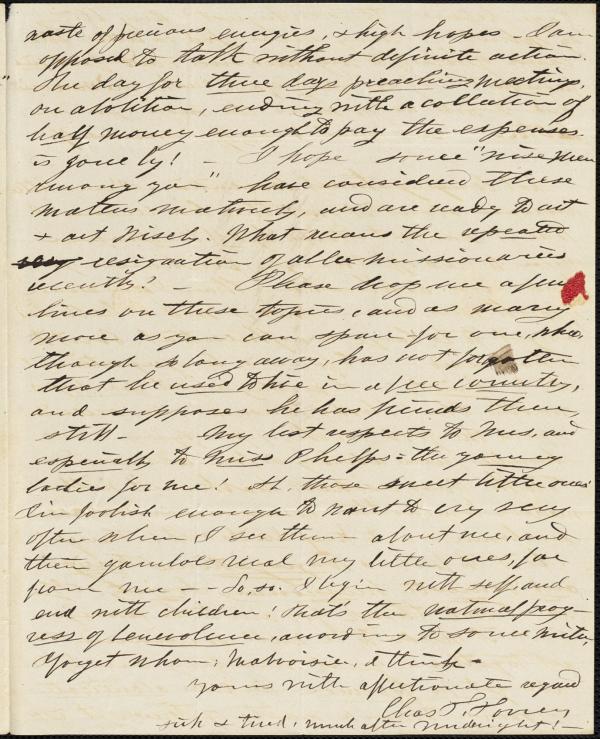 waste of precious energies, & high hopes - I am
opposed to talk without definite action.
The day for three days preaching meetings,
on abolition, ending with a collection of
half money enough to pay the expenses
is gone by! - I hope some "wise men
among you" have considered these
matters maturely, and are ready to act
& act wisely. What means the repeated
resignation of able missionaries
recently? - Please drop me a few
lines on these topics, and as many
more as you can spare for one, who,
though so long away, has not forgotten
that he used to live in a free country,
and supposes he has friends there,
still - My best respects to Mrs, and
especially to Miss Phelps = the young
ladies for me! Ah, those sweet little ones!
I'm foolish enough to want to cry very
often when I see them about me, and
their gambols recal my little ones, far
from me - - So, so. I begin with self and
end with children! that's the natural prog-
ress of benevolence, according to some writer,
I forget whom; Malvoisie, I think -
Yours with affectionate regard
Chas T. Torrey
sick & tired; much after midnight! -